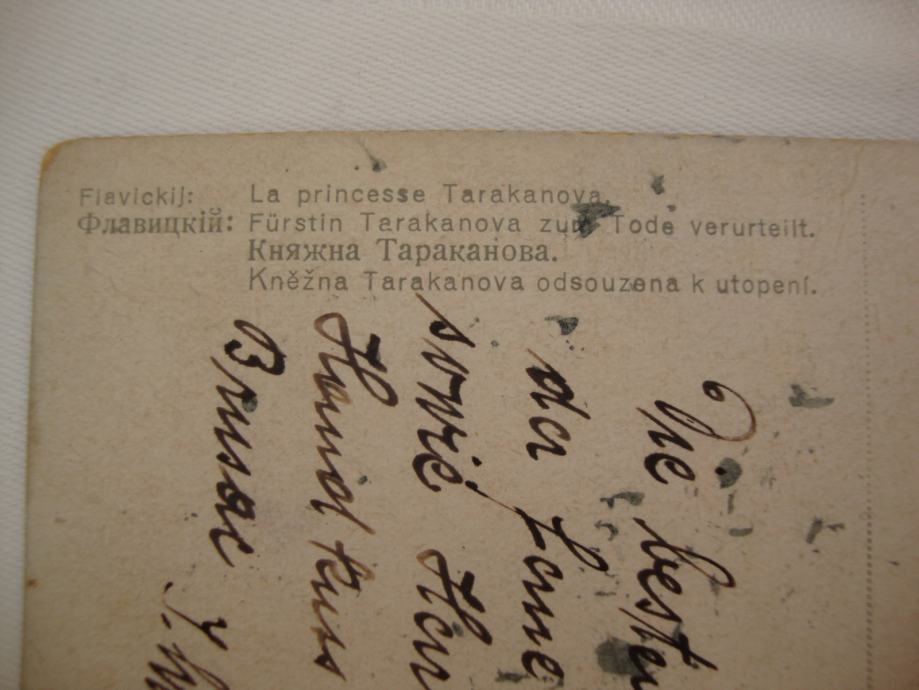 Flavickij: La princesse Tarakanova.
Флавицкій: Fürstin Tarakanova zum Tode verurteilt.
Княжна Тараканова.
Kněžna Tarakanova odsouzena k utopení.
Die besten
der
sowie
Handkuss